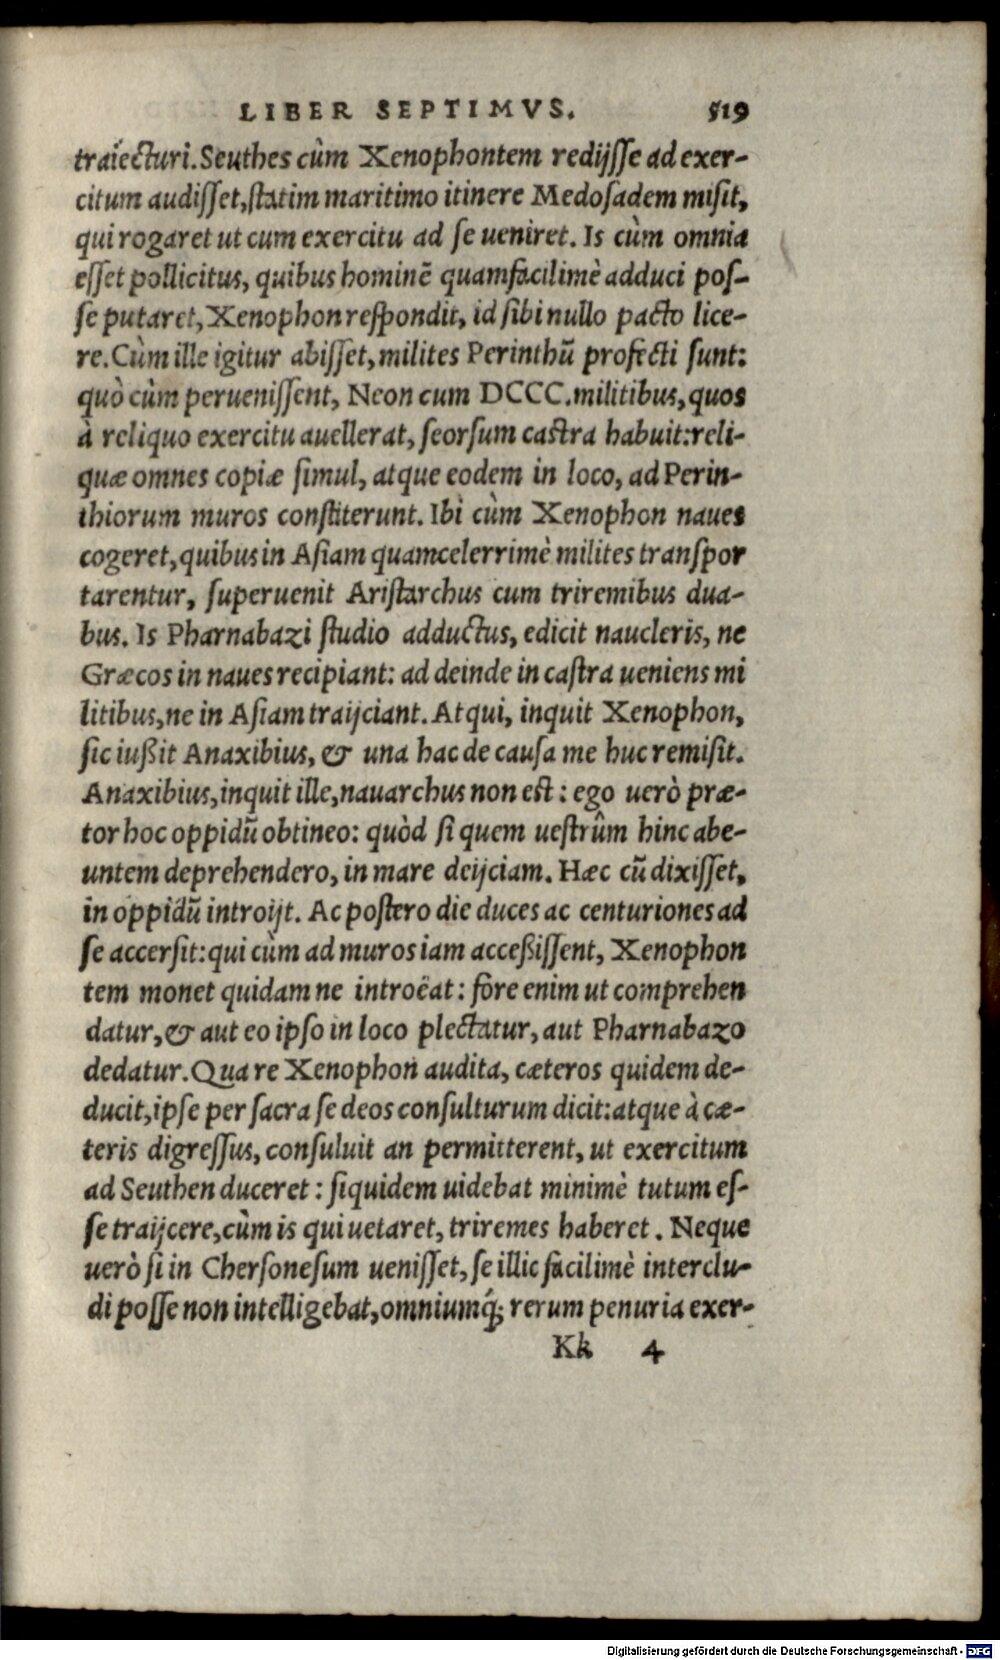 LIBER SEPTIMVS. 519
traiecturi. Seuthes cùm Xenophontem redijſſe ad exer-
citum audiſſet, ſtatim maritimo itinere Medoſadem miſit,
qui rogaret ut cum exercitu ad ſe ueniret. Is cùm omnia
eſſet pollicitus, quibus hominẽ quamfacilimè adduci poſ-
ſe putaret, Xenophon reſpondit, id ſibi nullo pacto lice-
re. Cùm ille igitur abiſſet, milites Perinthũ profecti ſunt:
quò cùm peruenißent, Neon cum DCCC. militibus, quos
à reliquo exercitu auellerat, ſeorſum caſtra habuit: reli-
quæ omnes copiæ ſimul, atque eodem in loco, ad Perin-
thiorum muros conſtiterunt. Ibi cùm Xenophon naues
cogeret, quibus in Aſiam quamcelerrimè milites tranſpor
tarentur, ſuperuenit Ariſtarchus cum triremibus dua-
bus. Is Pharnabazi ſtudio adductus, edicit naucleris, ne
Græcos in naues recipiant: ad deinde in caſtra ueniens mi
litibus, ne in Aſiam traijciant. Atqui, inquit Xenophon,
ſic iußit Anaxibius, & una hac de cauſa me huc remiſit.
Anaxibius, inquit ille, nauarchus non eſt: ego uerò præ-
tor hoc oppidũ obtineo: quòd ſi quem ueſtrûm hinc abe-
untem deprehendero, in mare deijciam. Hæc cũ dixiſſet,
in oppidũ introijt. Ac poſtero die duces ac centuriones ad
ſe accerſit: qui cùm ad muros iam acceßiſſent, Xenophon
tem monet quidam ne introëat: fore enim ut comprehen
datur, & aut eo ipſo in loco plectatur, aut Pharnabazo
dedatur. Qua re Xenophon audita, cæteros quidem de-
ducit, ipſe per ſacra ſe deos conſulturum dicit: atque à cæ-
teris digreſſus, conſuluit an permitterent, ut exercitum
ad Seuthen duceret: ſiquidem uidebat minimè tutum eſ-
ſe traijcere, cùm is qui uetaret, triremes haberet. Neque
uerò ſi in Cherſoneſum ueniſſet, ſe illic facilimè interclu-
di poſſe non intelligebat, omniumq́; rerum penuria exer-
Kk 4
Digitalisierung gefördert durch die Deutsche Forschungsgemeinschaft - DFG